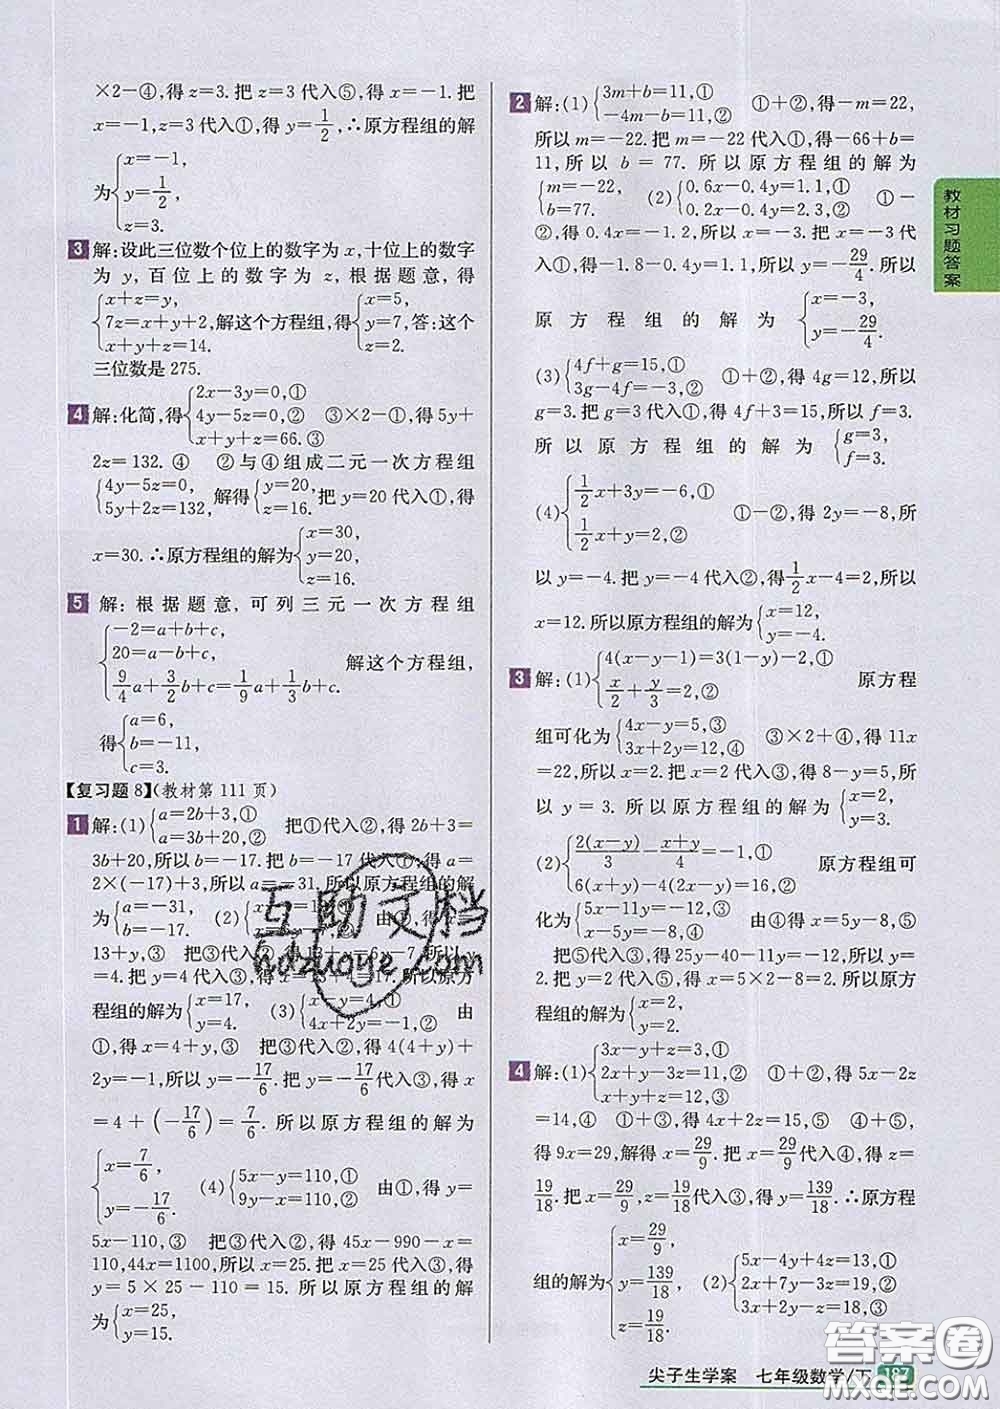 ×2-④,得z=3.把z=3代入⑤,得x=-1.把
x=-1,z=3代入①,得y=1/2,∴原方程组的解
为{x=-1,
y=1/2,
z=3.
3 解:设此三位数个位上的数字为x,十位上的数字
为y,百位上的数字为z,根据题意,得
{x+z=y,
7z=x+y+2,解这个方程组,得{x=5,y=7,z=2.答:这个
x+y+z=14.
三位数是275.
4 解:化简,得{2x-3y=0,①
4y-5z=0,② ③×2-①,得5y+
x+y+z=66.③
2z=132.④ ②与④组成二元一次方程组
{4y-5z=0,5y+2z=132,解得{y=20,z=16.把y=20代入①,得
x=30.∴原方程组的解为{x=30,y=20,z=16.
5 解:根据题意,可列三元一次方程组
{-2=a+b+c,
20=a-b+c,
9/4a+3/2b+c=1/9a+1/3b+c. 解这个方程组,
得{a=6,b=-11,c=3.
【复习题8】(教材第111页)
1 解:(1){a=2b+3,①a=3b+20,② 把①代入②,得2b+3=
3b+20,所以b=-17.把b=-17代入①,得a=
2×(-17)+3,所以a=-31.所以原方程组的解
为{a=-31,b=-17. (2) 由①,得x=
13+y,③ 把③代入②,得13+y=6y-7,所以y
=4.把y=4代入③,得x=13+4=17.所以原方
程组的解为{x=17,y=4. (3){x-y=4,①4x+2y=-1,② 由
①,得x=4+y,③ 把③代入②,得4(4+y)+
2y=-1,所以y=-17/6.把y=-17/6代入③,得x
=4+(-17/6)=7/6.所以原方程组的解为
{x=7/6,y=-17/6. (4){5x-y=110,①9y-x=110,② 由①,得y=
5x-110,③ 把③代入②,得45x-990-x=
110,44x=1100,所以x=25.把x=25代入③,得
y=5×25-110=15.所以原方程组的解
为{x=25,y=15.
2 解:(1){3m+b=11,①-4m-b=11,② ①+②,得-m=22,
所以m=-22.把m=-22代入①,得-66+b=
11,所以b=77.所以原方程组的解为
{m=-22,b=77. (2){0.6x-0.4y=1.1,①0.2x-0.4y=2.3,② ①-
②,得0.4x=-1.2,所以x=-3.把x=-3代
入①,得-1.8-0.4y=1.1,所以y=-29/4.所以
原方程组的解为{x=-3,y=-29/4.
(3){4f+g=15,①3g-4f=-3,② ①+②,得4g=12,所以
g=3.把g=3代入①,得4f+3=15,所以f=3.
所以原方程组的解为{g=3,f=3.
(4){1/2x+3y=-6,①1/2x+y=2,② ①-②,得2y=-8,所
以y=-4.把y=-4代入②,得1/2x-4=2,所以
x=12.所以原方程组的解为{x=12,y=-4.
3 解:(1){4(x-y-1)=3(1-y)-2,①x/2+y/3=2,② 原方程
组可化为{4x-y=5,③3x+2y=12,④ ③×2+④,得11x
=22,所以x=2.把x=2代入③,得8-y=5,所
以y=3.所以原方程组的解为{x=2,y=3.
(2){2(x-y)/3-(x+y)/4=-1,①6(x+y)-4(2x-y)=16,② 原方程组可
化为{5x-11y=-12,③x-5y=-8,④ 由④得x=5y-8,⑤
把⑤代入③,得25y-40-11y=-12,所以y=
2.把y=2代入⑤,得x=5×2-8=2.所以原方
程组的解为{x=2,y=2.
4 解:(1){3x-y+z=3,①2x+y-3z=11,②x+y+z=12,③ ①+②,得5x-2z
=14,④ ①+③,得4x+2z=15,⑤ ④+⑤,
得9x=29,解得x=29/9.把x=29/9代入④,得z=
19/18.把x=29/9,z=19/18代入③,得y=139/18.∴原方程
组的解为{x=29/9,y=139/18,z=19/18. (2){5x-4y+4z=13,①2x+7y-3z=19,②3x+2y-z=18,③
教材习题答案
互助文档
hdzuoye.com
答案圈
尖子生学案 七年级数学/下 187